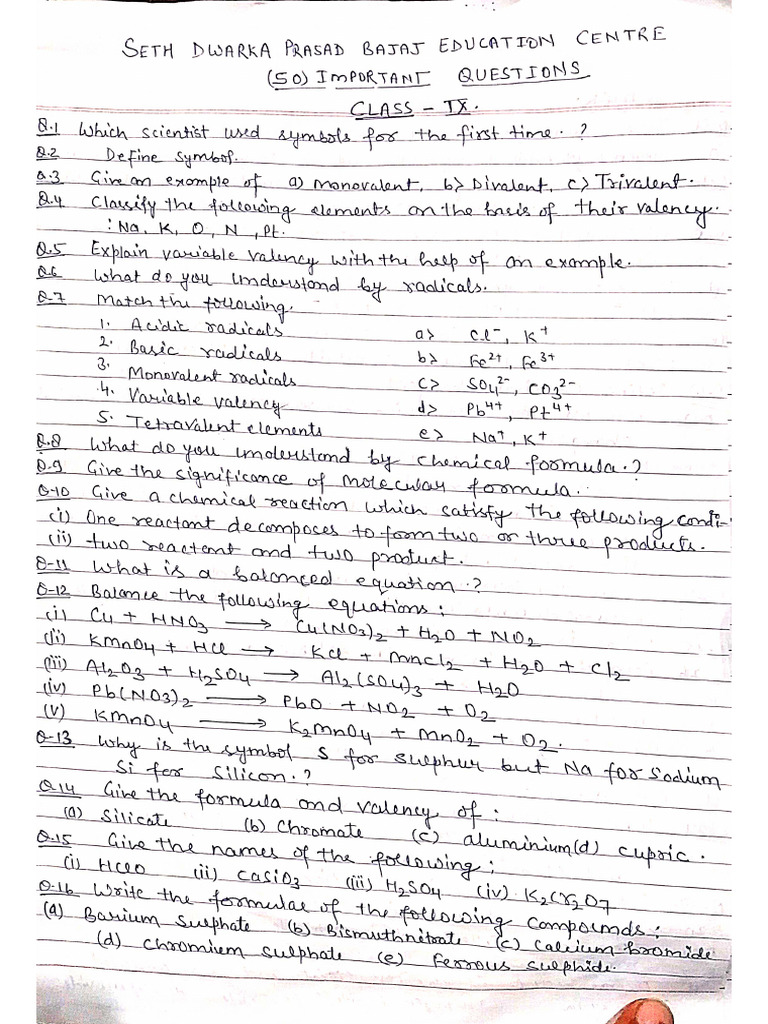 SETH DWARKA PRASAD BAJAJ EDUCATION CENTRE
(50) IMPORTANT QUESTIONS
CLASS - IX.
Q.1 Which scientist used symbols for the first time. ?
Q.2 Define symbol.
Q.3 Give an example of a) Monovalent, b) Divalent, c) Trivalent.
Q.4 Classify the following elements on the basis of their valency.
: Na, K, O, N, Pt.
Q.5 Explain variable valency with the help of an example.
Q.6 What do you understand by radicals.
Q.7 Match the following.
1. Acidic radicals a) Cl⁻, K⁺
2. Basic radicals b) Fe²⁺, Fe³⁺
3. Monovalent radicals c) SO₄²⁻, CO₃²⁻
4. Variable valency d) Pb⁴⁺, Pt⁴⁺
5. Tetravalent elements e) Na⁺, K⁺
Q.8 What do you understand by chemical formula. ?
Q.9 Give the significance of molecular formula.
Q.10 Give a chemical reaction which satisfy the following condi-
(i) One reactant decomposes to form two or three products.
(ii) two reactant and two product.
Q-11 What is a balanced equation. ?
Q-12 Balance the following equations :
(i) Cu + HNO₃ → Cu(NO₃)₂ + H₂O + NO₂
(ii) KMnO₄ + HCl → KCl + MnCl₂ + H₂O + Cl₂
(iii) Al₂O₃ + H₂SO₄ → Al₂(SO₄)₃ + H₂O
(iv) Pb(NO₃)₂ → PbO + NO₂ + O₂
(v) KMnO₄ → K₂MnO₄ + MnO₂ + O₂.
Q-13 Why is the symbol S for sulphur but Na for Sodium
Si for Silicon. ?
Q.14 Give the formula and valency of :
(a) Silicate (b) Chromate (c) aluminium (d) cupric.
Q.15 Give the names of the following :
(i) HClO (ii) CaSiO₃ (iii) H₂SO₄ (iv) K₂Cr₂O₇
Q.16 Write the formulae of the following compounds :
(a) Barium Sulphate (b) Bismuthnitrate (c) Calcium bromide
(d) Chromium sulphate (e) Ferrous Sulphide.